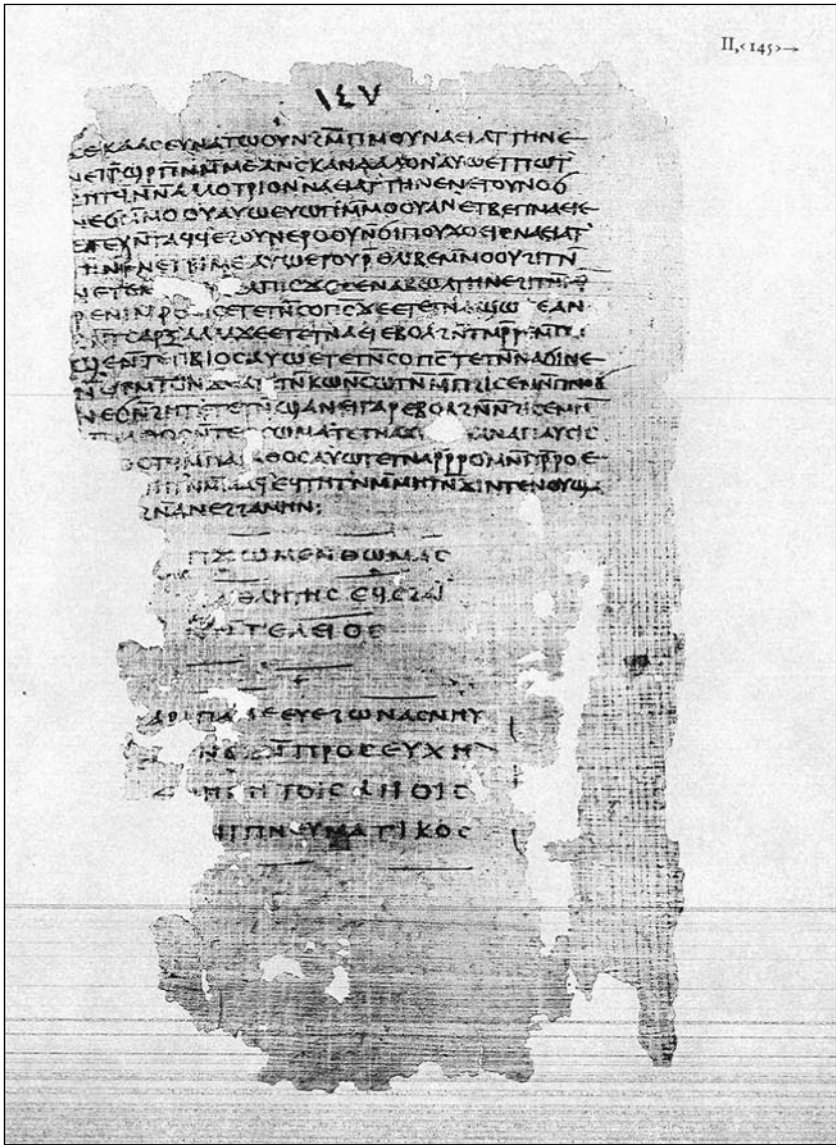 ϫⲉⲕⲁⲁⲥⲉⲩⲛⲁⲧⲱⲟⲩⲛϩⲙ̅ⲡⲙⲟⲩⲛⲁⲉⲓⲁⲧⲧⲏⲛⲉ
ⲛⲉⲧⲣ̅ϣⲣ̅ⲡⲛ̅ⲙⲙⲉⲁⲛⲥⲕⲁⲛⲇⲁⲗⲟⲛⲁⲩⲱⲉⲧⲡⲱⲧ
ⲛ̅ⲛⲁⲗⲗⲟⲧⲣⲓⲟⲛⲛⲁⲉⲓⲁⲧⲧⲏⲛⲉⲛⲉⲧⲟⲩⲛⲟϭ
ⲛⲉϭⲙ̅ⲙⲟⲟⲩⲁⲩⲱⲉⲩⲱⲡⲙ̅ⲙⲟⲟⲩⲁⲛⲉⲧⲃⲉⲡⲙⲁⲉⲓⲉ
ⲉⲧⲉⲩⲛ̅ⲧⲁϥϥⲉϩⲟⲩⲛⲉⲣⲟⲟⲩⲛ̅ϭⲓⲡⲟⲩϫⲟⲉⲓⲥⲛⲁⲉⲓⲁⲧ
ⲧⲏⲛⲉⲛⲉⲧⲣⲓⲙⲉⲁⲩⲱⲉⲧⲟⲩⲣ̅ⲑⲗⲓⲃⲉⲙ̅ⲙⲟⲟⲩϩⲓⲧⲛ̅
ϫⲉⲥⲉⲛⲁⲃⲱⲗⲁⲧⲏⲛⲉϩⲓⲧⲛ̅
ⲣⲉⲛⲓⲙⲣⲟⲉⲓⲥⲉⲧⲉⲧⲛ̅ⲥⲟⲡⲥ̅ϫⲉⲉⲧⲉⲧⲛⲁϣⲱⲡⲉⲁⲛ
ϩⲛ̅ⲧⲥⲁⲣⲝⲁⲗⲗⲁϫⲉⲉⲧⲉⲧⲛⲁⲉⲓⲉⲃⲟⲗϩⲛ̅ⲧⲙ̅ⲣⲣⲉⲙ̅ⲡⲥⲓ
ϣⲉⲛ̅ⲧⲉⲡⲃⲓⲟⲥⲁⲩⲱⲉⲧⲉⲧⲛ̅ⲥⲟⲡⲥ̅ⲧⲉⲧⲛⲛⲁϭⲓⲛⲉ
ⲛ̅ⲟⲩⲙ̅ⲧⲟⲛϫⲉⲁⲧⲉⲧⲛ̅ⲕⲱⲛ̅ⲥⲱⲧⲛ̅ⲙ̅ⲡϩⲓⲥⲉⲙⲛ̅ⲡⲛⲟϭ
ⲛⲉϭⲛ̅ϩⲏⲧⲉⲧⲉⲧⲛ̅ϣⲁⲛⲉⲓⲅⲁⲣⲉⲃⲟⲗϩⲛ̅ⲛ̅ϩⲓⲥⲉⲙⲛ̅
ⲙ̅ⲡⲁⲑⲟⲥⲛ̅ⲧⲉⲡⲥⲱⲙⲁⲧⲉⲧⲛⲁϫⲓⲛ̅ⲟⲩⲁⲛⲁⲡⲁⲩⲥⲓⲥ
ϩⲓⲧⲟⲟⲧϥⲙ̅ⲡⲁⲅⲁⲑⲟⲥⲁⲩⲱⲧⲉⲧⲛⲁⲣ̅ⲣ̅ⲣⲟⲙⲛ̅ⲡⲣ̅ⲣⲟⲉ
ⲧⲉⲧⲛ̅ⲧⲏⲧⲛ̅ⲛⲙ̅ⲙⲁϥⲉϥⲧⲏⲧⲛⲙ̅ⲙⲏⲧⲛ̅ϫⲓⲛⲧⲉⲛⲟⲩϣⲁ
ⲉⲛⲉϩⲛ̅ⲉⲛⲉϩϩⲁⲙⲏⲛ:
ⲡϫⲱⲙⲉⲛⲑⲱⲙⲁⲥ
ⲡⲁⲑⲗⲏⲧⲏⲥⲉϥⲥϩⲁⲓ̈
ⲛⲛ̅ⲧⲉⲗⲉⲓⲟⲥ
ⲁⲣⲓⲡⲁⲙⲉⲉⲩⲉϩⲱⲛⲁⲥⲛⲏⲩ
ϩⲛ̅ⲛⲉⲧⲛ̅ⲡⲣⲟⲥⲉⲩⲭⲏ
ⲉⲓⲣⲏⲛⲏⲧⲟⲓⲥⲁⲅⲓⲟⲓⲥ
ⲙⲛ̅ⲛⲓⲡⲛⲉⲩⲙⲁⲧⲓⲕⲟⲥ
١٤٧
II,‹145›→